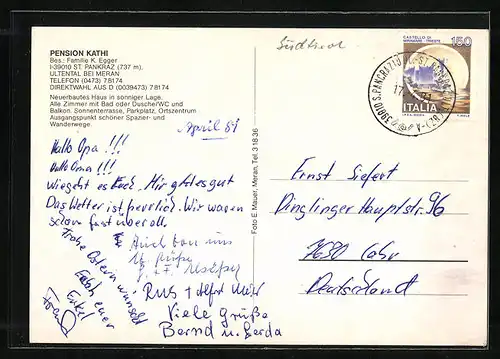 PENSION KATHI
Bes.: Familie K. Egger
I-39010 ST. PANKRAZ (737 m),
ULTENTAL BEI MERAN
TELEFON (0473) 78174
DIREKTWAHL AUS D (0039473) 78174
Neuerbautes Haus in sonniger Lage.
Alle Zimmer mit Bad oder Dusche/WC und
Balkon. Sonnenterrasse, Parkplatz, Ortszentrum
Ausgangspunkt schöner Spazier- und
Wanderwege.
April 81
Hallo Opa !!!
Hallo Oma !!!
Wie geht es Euch. Mir geht es gut
Das Wetter ist herrlich. Wir waren
schon fast überall.
Frohe Ostern wünscht
Euch euer
Enkel
Auch von uns
Grüße
Rus +
Viele Grüße
Bernd u. Gerda
Foto E. Mauer, Meran, Tel. 3 18 36
Südtirol
CASTELLO DI
MIRAMARE - TRIESTE
150
ITALIA
39010 S. PANCRAZIO
(BZ)
17
Ernst Siefert
Dinglinger Hauptstr. 96
7630 Lahr
Deutschland